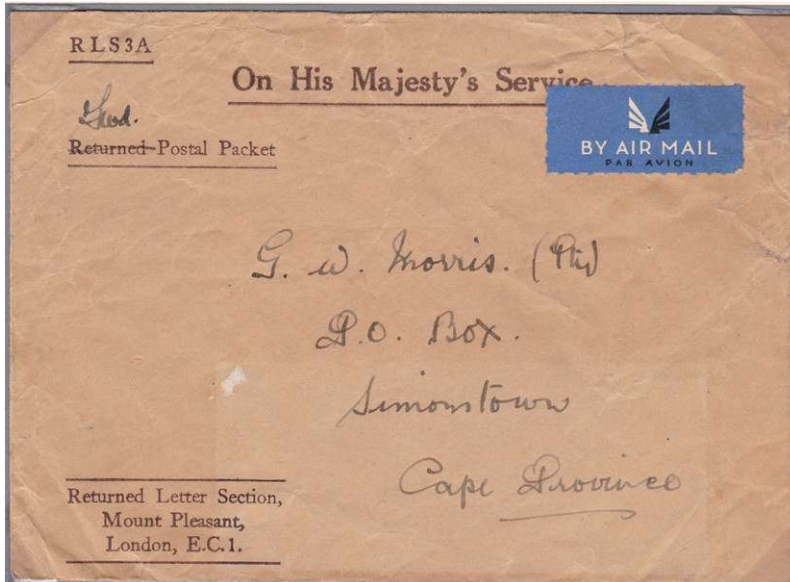 RLS3A
On His Majesty's Service
Fwd.
Returned Postal Packet
BY AIR MAIL
PAR AVION
G. W. Morris. (Pty)
P.O. Box.
Simonstown
Cape Province
Returned Letter Section,
Mount Pleasant,
London, E.C.1.